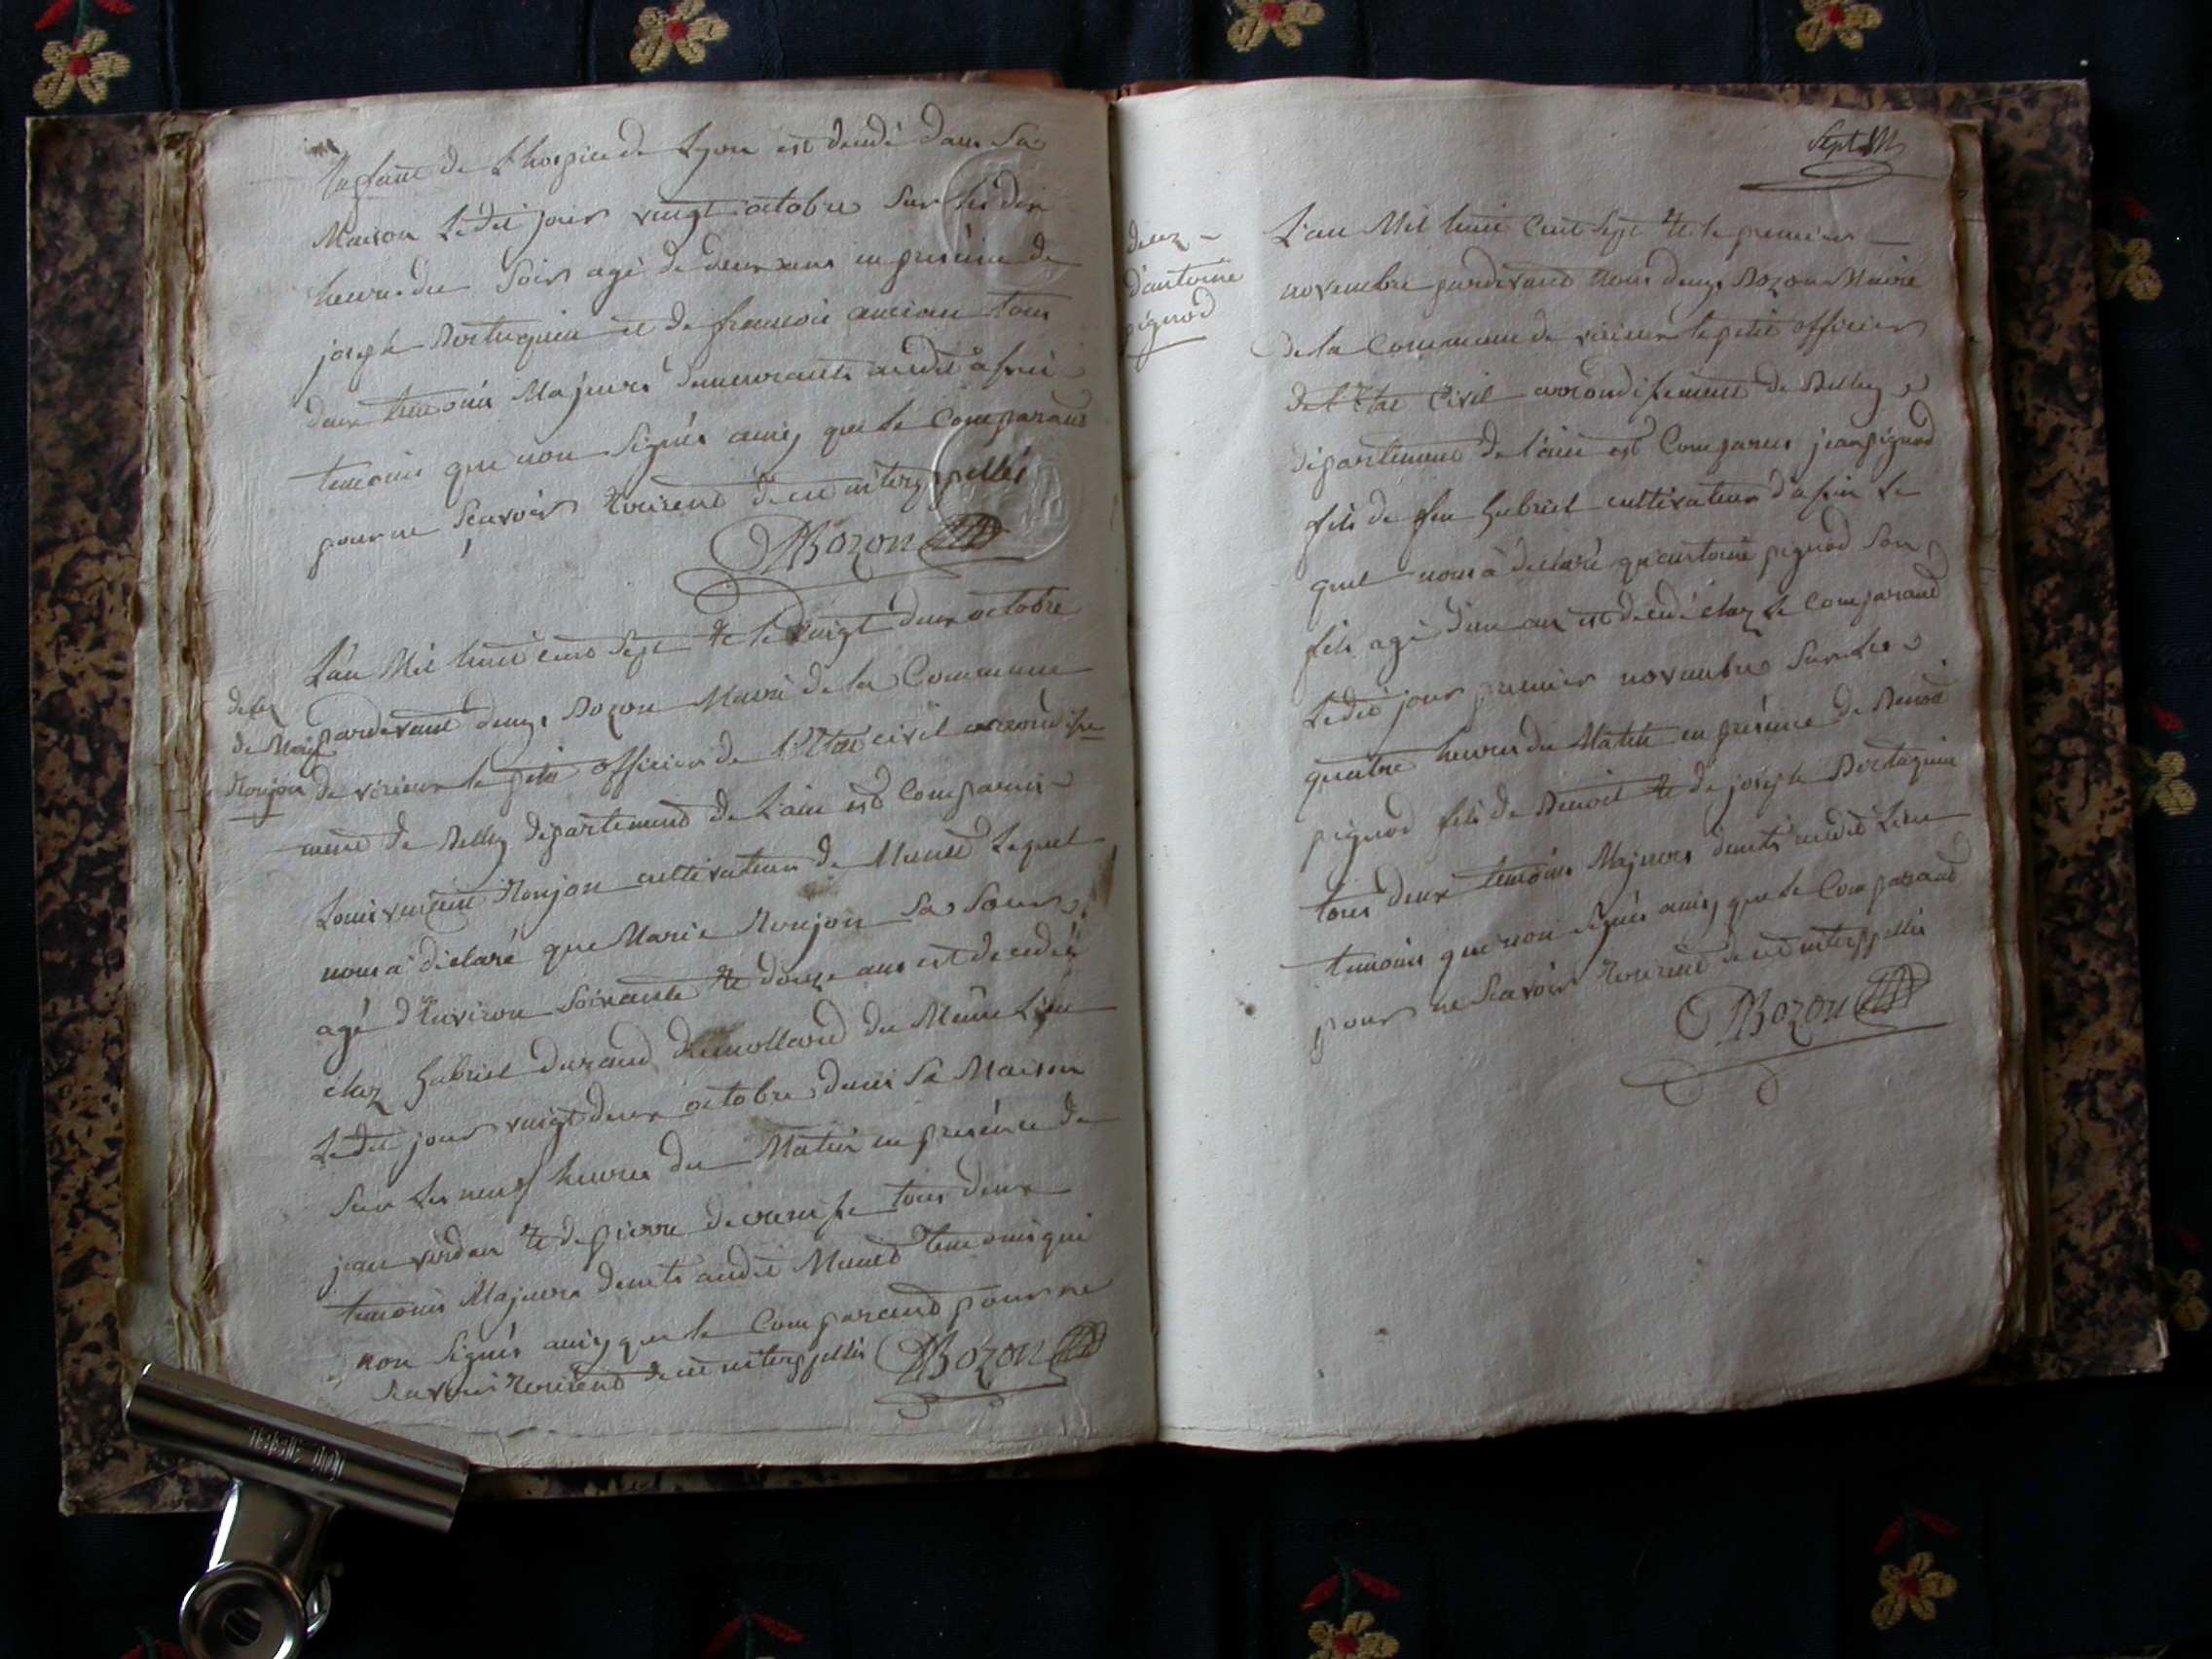 de L'hospice de Lyon est décédé dans Sa
Maison Ledit jour vingt octobre Sur les dix
heures du Soir agé de deux ans en présence de
joseph et de françois ancian tous
deux temoins Majeurs demeurants audit
temoins que non Signés ainsy que le Comparant
pour ne Scavoir de ce interppellés
Bozon
L'an Mil huit cent Sept & le vingt deux octobre
deces
pardevant denys Bozon Maire de la Commune
de Marie
Roujon
de virieux le petit officier de L'Etat civil arrondisse
ment de Belley département de L'ain est Comparus
Louis vincent Roujon cultivateur de Munet Lequel
nous a déclaré que Marie Roujon Sa Sœur
agé d'Environ Soixante & douze ans est décédée
chez Gabriel durand du Même Lieu
Ledit jour vingt deux octobre dans Sa Maison
Sur Les neuf heures du Matin en présence de
jean & de pierre tous deux
temoins Majeurs audit Munet temoins qui
non Signés ainsy que le Comparand pour ne
Scavoir de ce interppellés Bozon
Sept
deces
d'antoine
pignod
L'an Mil huit Cent Sept & le premier
novembre pardevand nous denys Bozon Maire
de la Commune de virieux le petit officier
de L'Etat Civil arrondissement de Belley
département de L'ain est Comparus jean pignod
fils de feu Gabriel cultivateur Le
quel nous à déclaré qu'antoine pignod Son
fils agé d'un an est décédé chez Le Comparand
Ledit jour premier novembre Sur Les
quatre heures du Matin en présence de Benoit
pignod fils de Benoit & de joseph
tous deux temoins Majeurs audit Lieu
temoins que non Signés ainsy que le Comparand
pour ne Scavoir de ce interppellés
Bozon